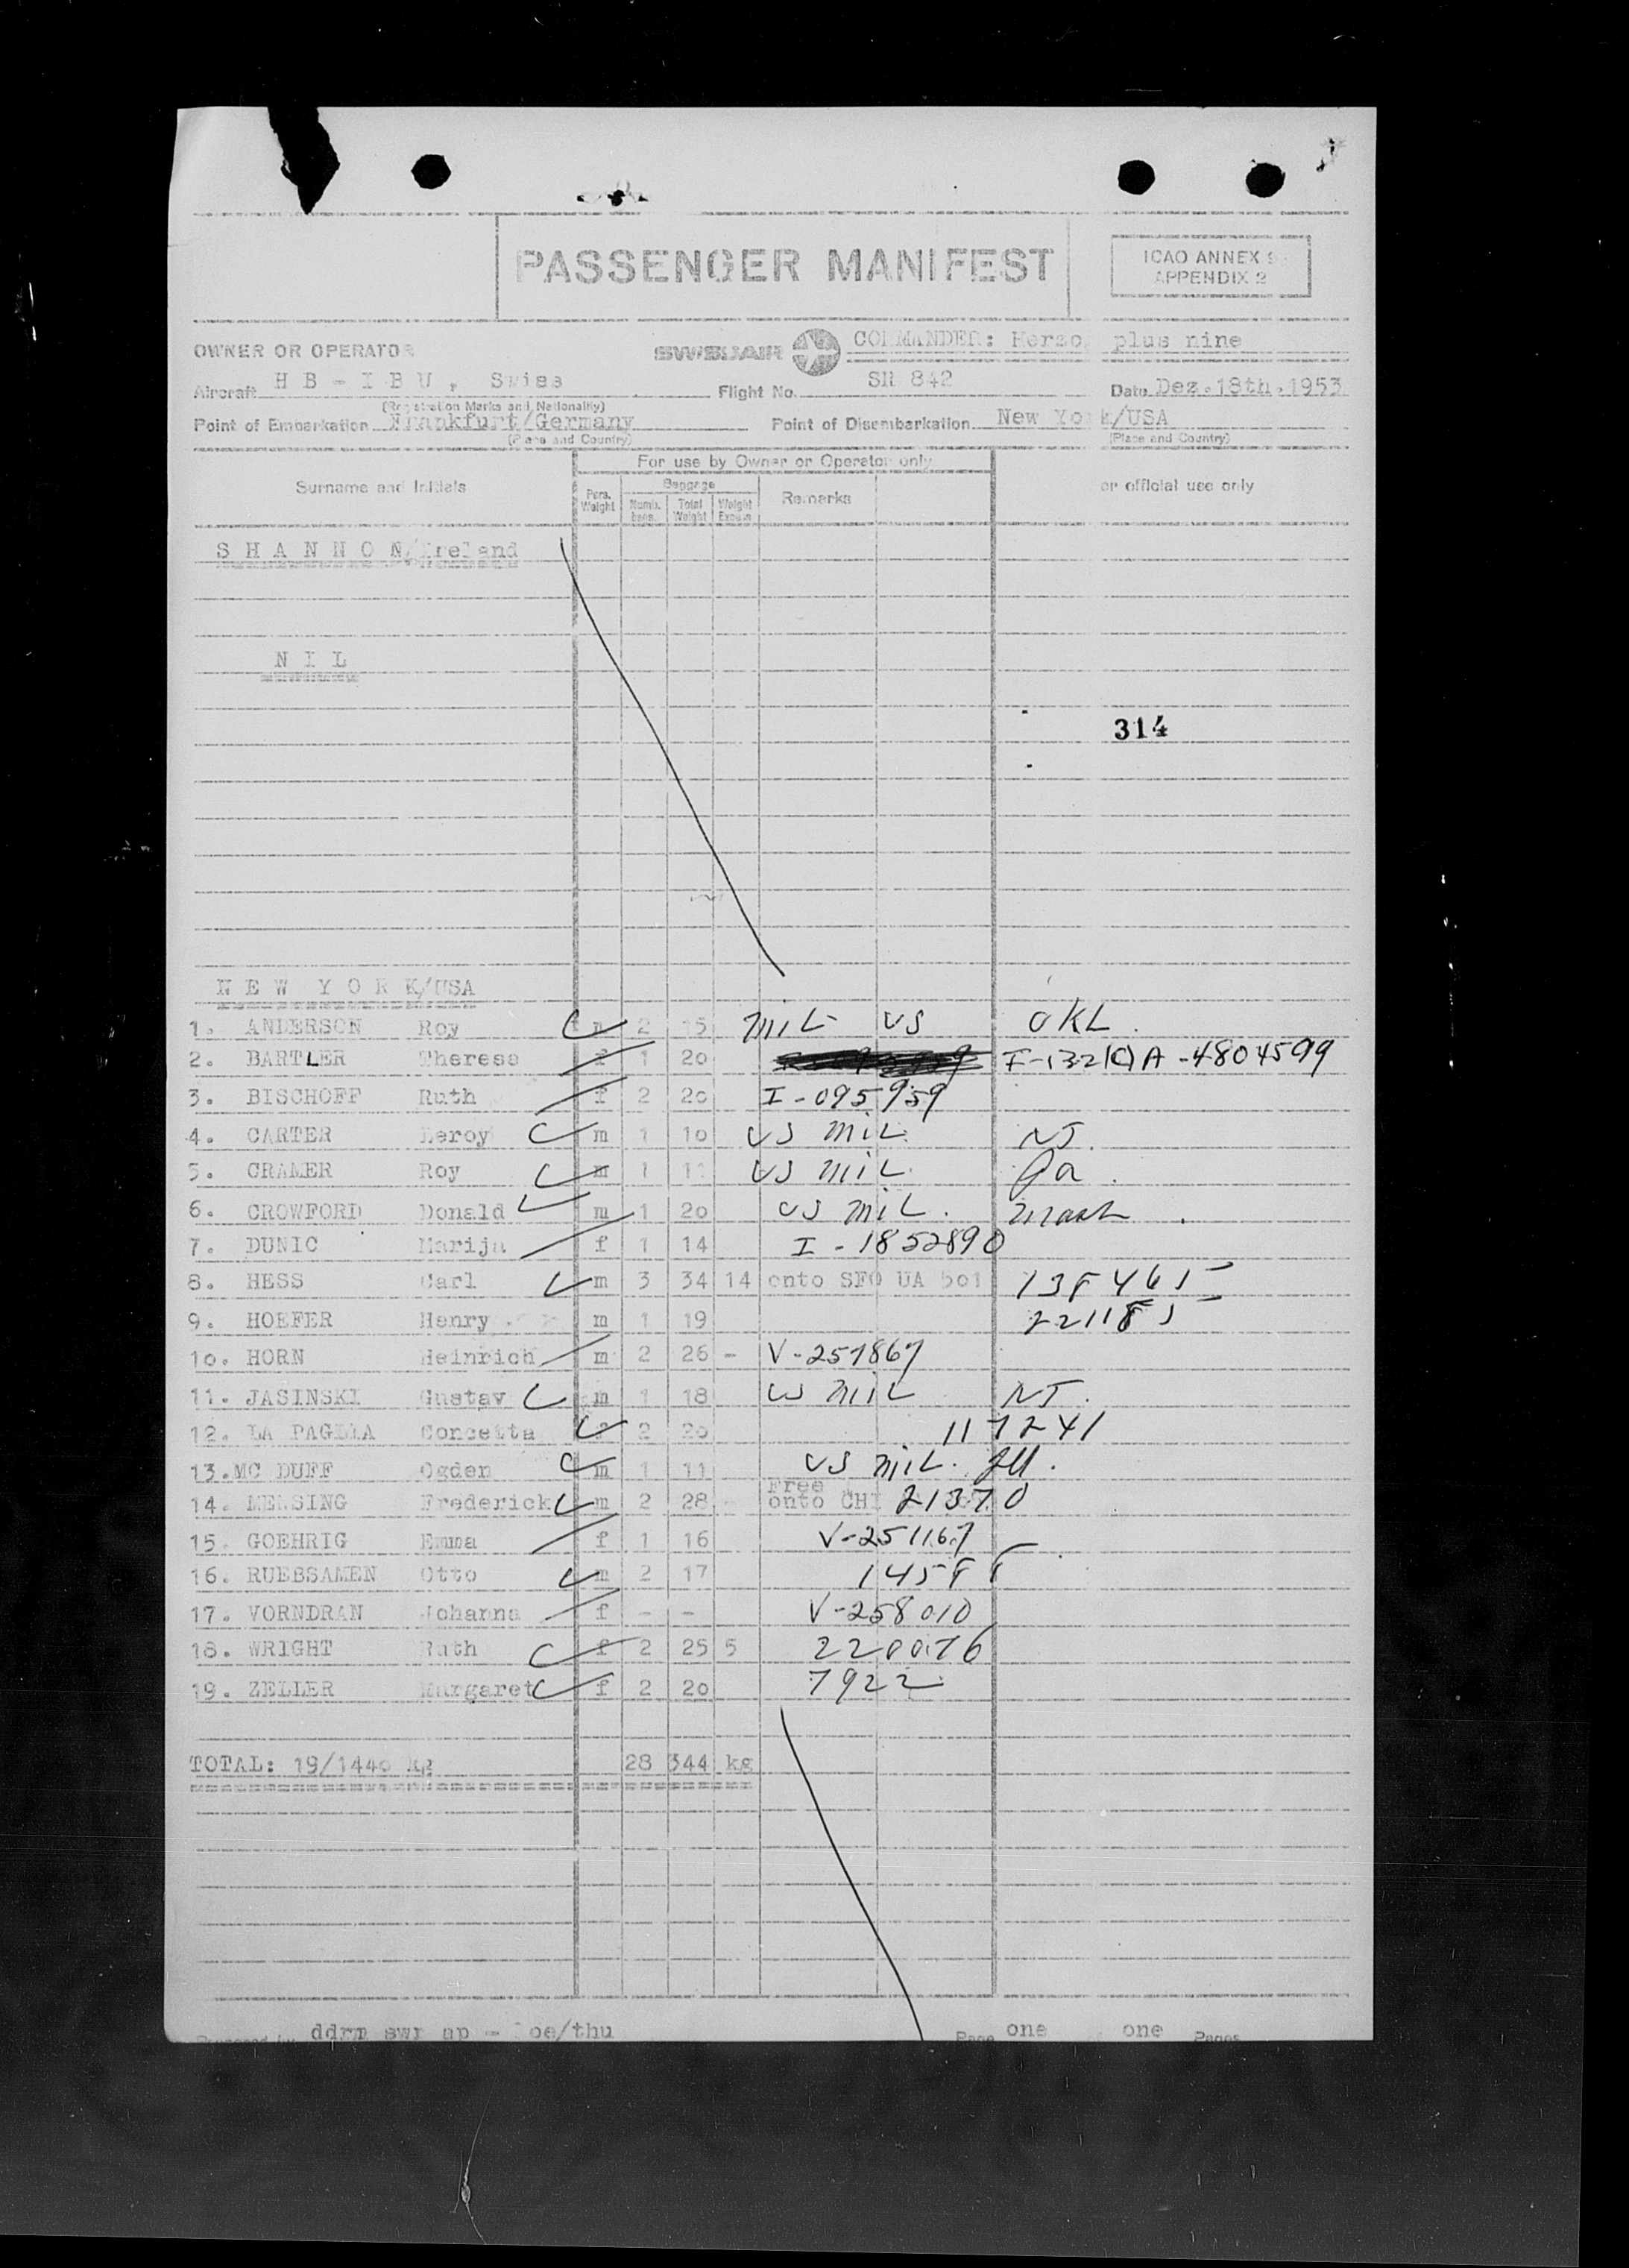 PASSENGER MANIFEST
ICAO ANNEX 9
APPENDIX 2
OWNER OR OPERATOR SWISSAIR COMMANDER: Herzog plus nine
Aircraft H B - I B U , Swiss Flight No. SR 842 Date Dez.18th.1953
(Registration Marks and Nationality)
Point of Embarkation Frankfurt/Germany Point of Disembarkation New York/USA
(Place and Country) (Place and Country)
For use by Owner or Operator only
Surname and Initials Pers. Weight Baggage Numb. Total Weight Weight Excess Remarks or official use only
S H A N N O N/Ireland
N I L
314
N E W Y O R K/USA
1. ANDERSON Roy m 2 15 MIL US OKL.
2. BARTLER Therese f 1 20 I-132(C) A-4804599
3. BISCHOFF Ruth f 2 20 I-095959
4. CARTER Leroy m 1 10 US MIL. NJ.
5. CRAMER Roy m 1 11 US MIL. Pa.
6. CROWFORD Donald m 1 20 US MIL.
7. DUNIC Marija f 1 14 I-1852890
8. HESS Carl m 3 34 14 onto SFO UA 501
9. HOEFER Henry m 1 19 221185
10. HORN Heinrich m 2 26 - V-251867
11. JASINSKI Gustav m 1 18 US MIL NJ.
12. LA PAGLIA Concetta f 2 20 117241
13.MC DUFF Ogden m 1 11 US MIL. Ill.
14. MENSING Frederick m 2 28 Free onto CHI 21370
15. GOEHRIG Emma f 1 16 V-251167
16. RUEBSAMEN Otto m 2 17
17. VORNDRAN Johanna f - - V-258010
18. WRIGHT Ruth f 2 25 5 220076
19. ZELLER Margaret f 2 20 7922
TOTAL: 19/1440 kg 28 344 kg
Prepared by ddrm swr ap - oe/thu Page one one Pages